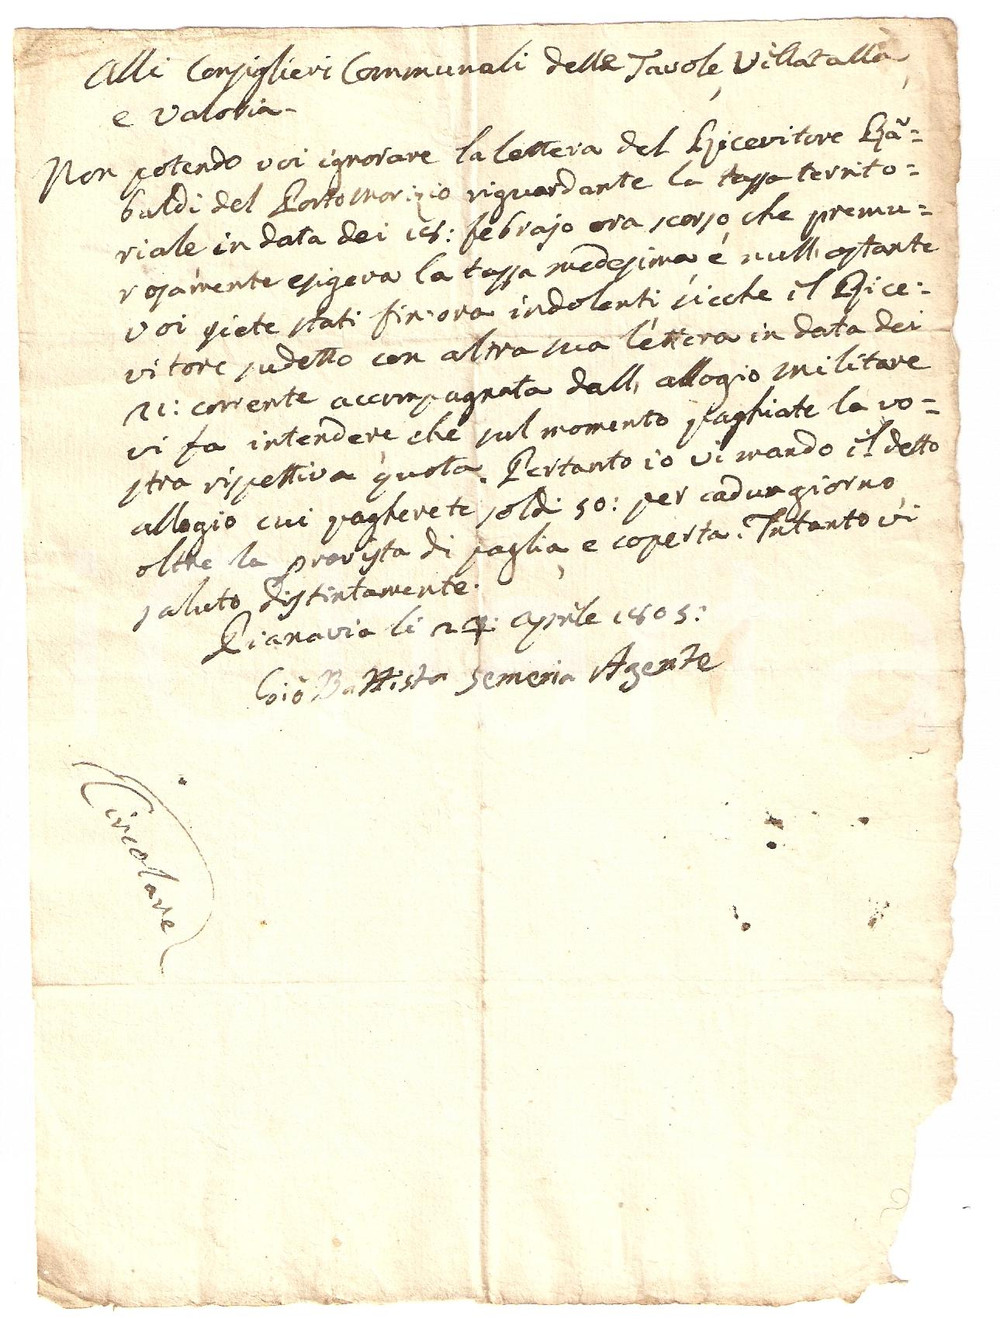 Alli Consiglieri Communali delle Tavole, Villatalla,
e Valoria -
Non potendo voi ignorare la lettera del Ricevitore Rã=
baldi del Porto Morizio riguardante la tassa territo=
riale in data dei 18: febrajo ora scorso che premu=
rosamente esigeva la tassa medesima è null'ostante
voi siete stati fin'ora indolenti sicche il Rice=
vitore sudetto con altra sua lettera in data dei
21: corrente accompagnata dall' allogio militare
vi fa intendere che sul momento paghiate la vo=
stra rispettiva quota. Pertanto io vi mando il detto
allogio cui pagherete soldi 50: per cadun giorno,
oltre la provista di paglia, e coperta. Intanto vi
saluto distintamente.
Pianavia li aprile 1805:
Gio Battista Semeria Agente
Circolare